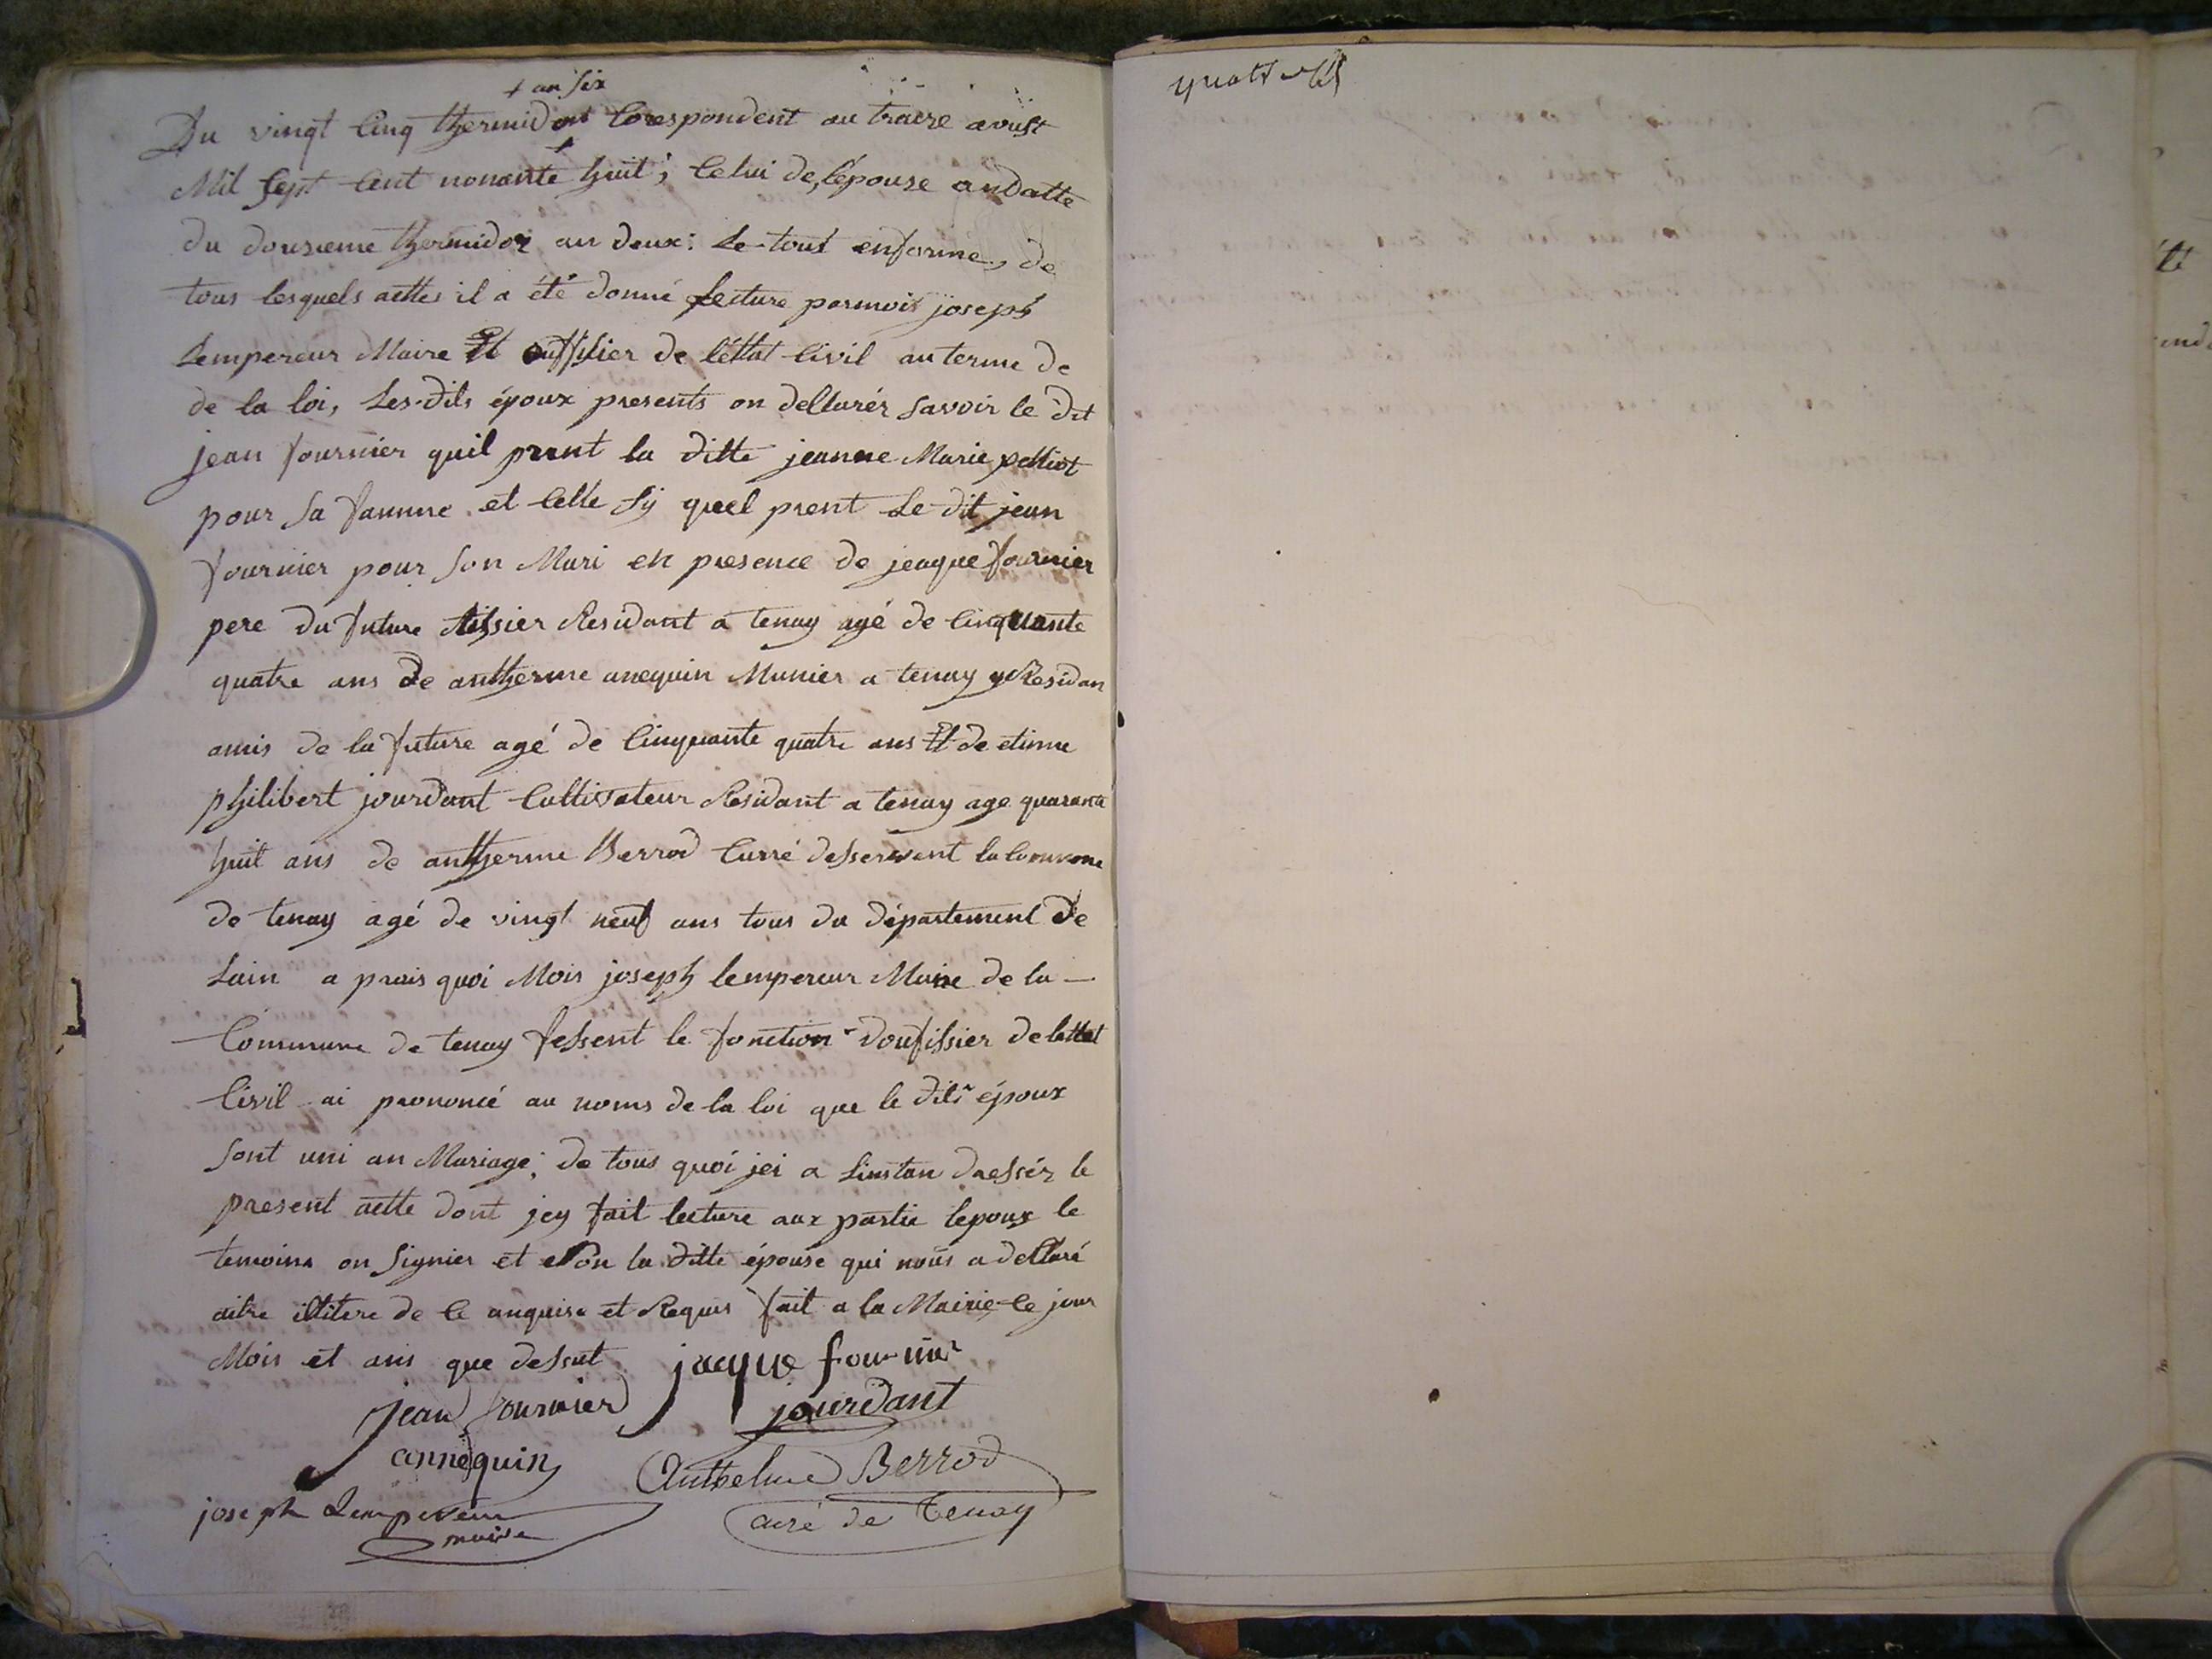 + an six
Du vingt cinq thermidor Corespondent au traize aoust
Mil sept cent nonante huit; celui de lépouse andatte
du douzieme thermidor an deux: Le tout enforme, de
tous lesquels acttes il a été donné lecture parmoi joseph
Lempereur Maire Et aufficier de léttat Civil au terme de
de la loi, Les dits époux presents on dellarér savoir le dit
jean fournier quil prent la ditte jeanne Marie pelliot
pour sa famme et celle sy quel prent Le dit jean
fournier pour son Mari en presence de jeaque fournier
pere du future tissier Residant a tenay agé de cinquante
quatre ans de antherme anequin Munier a tenay y Residan
amis de la future agé de cinquante quatre ans Et de etinne
philibert jourdant Cultivateur Residant a tenay age quarante
huit ans de antherme Berrod Curré desservent la commone
de tenay agé de vingt neuf ans tous du département de
Lain a prais quoi Mois joseph lempereur Maire de la
Commune de tenay fessent le fonction doufissier de lettat
Civil ai prononcé au noms de la loi que le dits époux
sont uni an Mariage; de tous quoi jei a Linstan dressér le
present actte dont jey fait lecture aux partie lepoux le
temoins on signier et non la ditte épouse qui nous a dellaré
aitre illitere de ce anquise et Requis fait a la Mairie le jour
Mois et ans que dessut
jacque fournier
jean fournier
jourdant
annequin
Anthelme Berrod
curé de Tenay
joseph Lempereur
maire